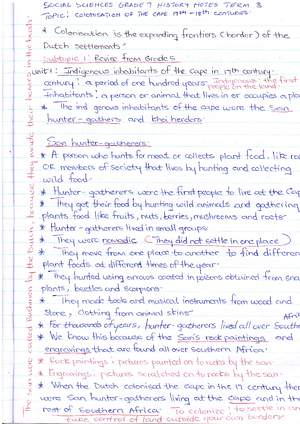 SOCIAL SCIENCES GRADE 7 HISTORY NOTES TERM 3
TOPIC: COLONISATION OF THE CAPE 17TH - 18TH CENTURIES
* Colonisation is the expanding frontiers (border) of the
Dutch settlements
Subtopic 1: Revise from Grade 5
unit 1: Indigenous inhabitants of the cape in 17th century
century: a period of one hundred years. Indigenous: the first
people on the land.
Inhabitants: a person or animal that lives in or occupies a pla
* The indigenous inhabitants of the cape were the San
hunter-gathers and khoi herders.
San hunter-gatherers:
* A person who hunts for meat or collects plant food, like roo
OR members of society that lives by hunting and collecting
wild food.
* Hunter-gatherers were the first people to live at the Cap
* They got their food by hunting wild animals and gathering
plants food like fruits, nuts, berries, mushrooms and roots
* Hunter-gatherers lived in small groups
* They were nomadic (They did not settle in one place)
* They move from one place to another to find differen
plants foods at different times of the year
* They hunted using arrows coated in poisons obtained from sna
plants, beetles and scorpions
* They made tools and musical instruments from wood and
stone, clothing from animal skins
* For thousands of years, hunter-gatherers lived all over Southe
Afric
* We know this because of the San's rock paintings and
engravings that are found all over southern Africa.
* Rock paintings: pictures painted on to rocks by the san.
* Engravings: pictures scratched on to rocks by the san.
* When the Dutch colonised the cape in the 17 century ther
were San hunter-gatherers living at the cape and in the
rest of Southern Africa. To colonise: to settle in an
take control of land outside your own borders
The san were called Bushmen by the Dutch, because they made their homes in the bush.